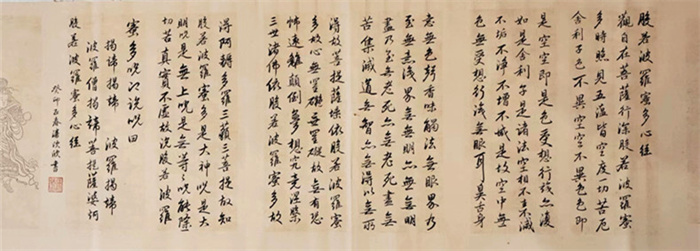 般若波羅蜜多心經
觀自在菩薩行深般若波羅蜜
多時照見五蘊皆空度一切苦厄
舍利子色不異空空不異色色即
是空空即是色受想行識亦復
如是舍利子是諸法空相不生不滅
不垢不淨不增不減是故空中無
色無受想行識無眼耳鼻舌身
意無色聲香味觸法無眼界乃
至無意識界無無明亦無無明
盡乃至無老死亦無老死盡無
苦集滅道無智亦無得以無所
得故菩提薩埵依般若波羅蜜
多故心無罣礙無罣礙故無有恐
怖遠離顛倒夢想究竟涅槃
三世諸佛依般若波羅蜜多故
得阿耨多羅三藐三菩提故知
般若波羅蜜多是大神咒是大
明咒是無上咒是無等等咒能除
一切苦真實不虛故說般若波羅
蜜多咒即說咒曰
揭諦揭諦 波羅揭諦
波羅僧揭諦 菩提薩婆訶
般若波羅蜜多心經
癸卯之春書